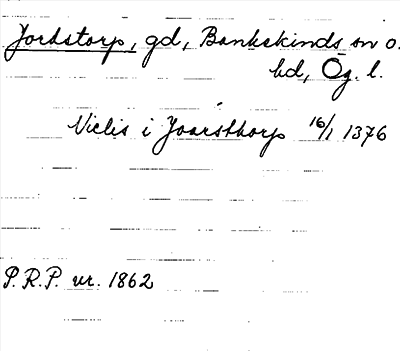 Jordstorp, gd, Bankekinds sn o.
hd, Ög. l.
Niclis i Joarsthorp 16/1 1376
P.R.P. nr. 1862